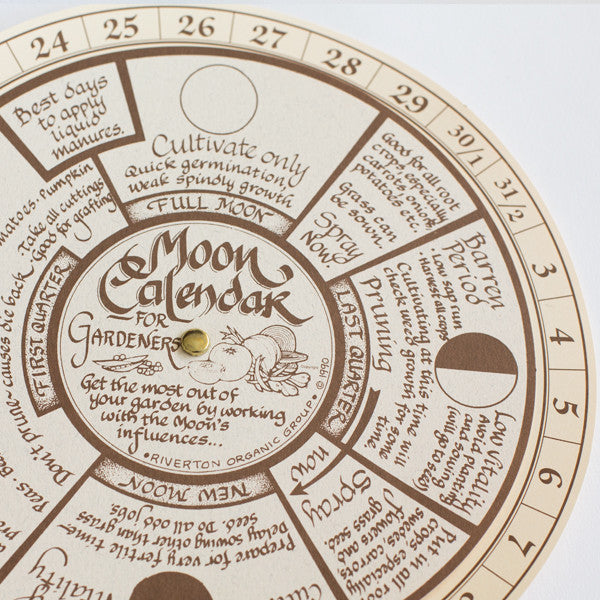 24 25 26 27 28 29 30/1 31/2 3 4 5 6 7
Best days
to apply
liquid
manures.
Cultivate only
Quick germination,
weak spindly growth
FULL MOON
Good for all root
crops, especially
carrots, onions,
potatoes etc.
Grass can
be sown.
Spray
Now!
Barren
Period
Low sap run
• Harvest all crops
Cultivating at this time will
check weed growth for some
time
Pruning
LAST QUARTER
Low vitality
avoid planting
and sowing
Put in all root
crops, especially
carrots
flowers and
grass seed.
Spray
now
NEW MOON
Prepare for very fertile time~
Delay sowing other than grass
seed. Do all odd jobs.
FIRST QUARTER
Pumpkin
Take all cuttings
Good for grafting
Don't prune~causes die back
Moon
Calendar
FOR
GARDENERS
Get the most out of
your garden by working
with the Moon's
influences...
• RIVERTON ORGANIC GROUP. © 1990